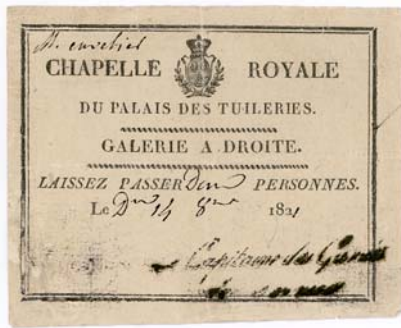 CHAPELLE ROYALE
DU PALAIS DES TUILERIES.
GALERIE A DROITE.
LAISSEZ PASSER deux PERSONNES.
Le Dre 14 8bre 1821
Capitaine des Gardes